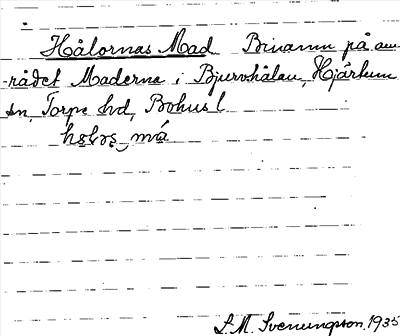 Hålornas Mad Binamn på om-
rådet Maderna i Bjurvhålan, Hjärtum
sn, Torpe hd, Bohusl
S. M. Svenungsson. 1935